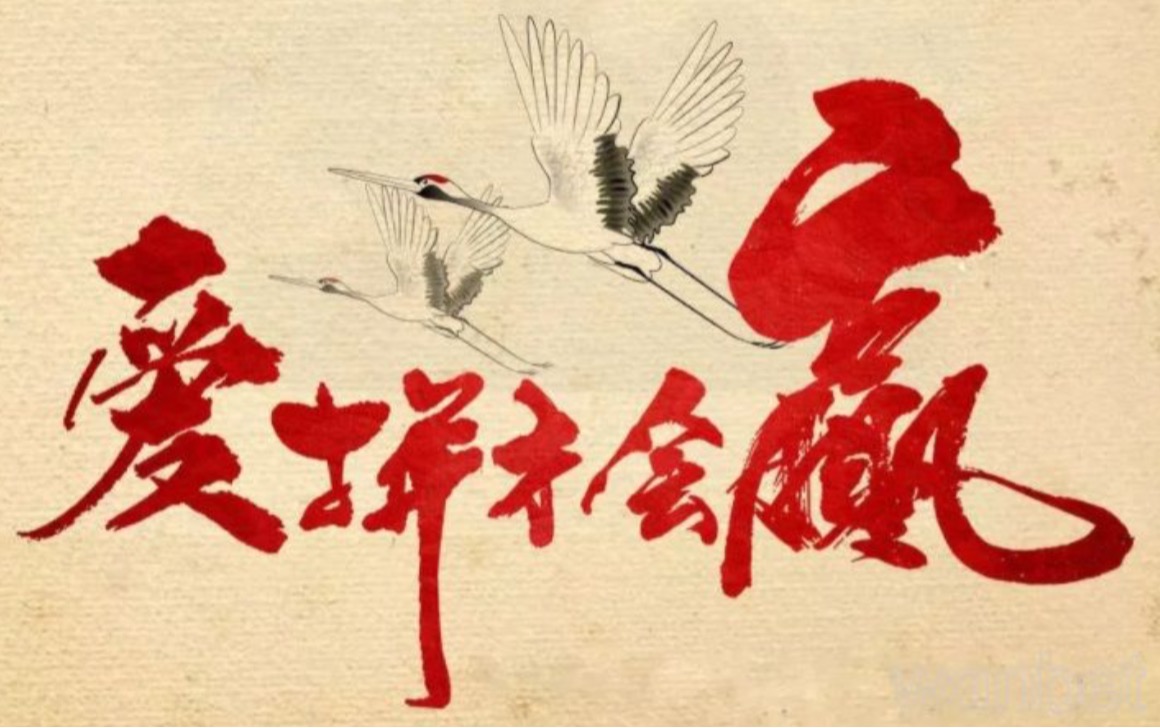 愛拼才会赢